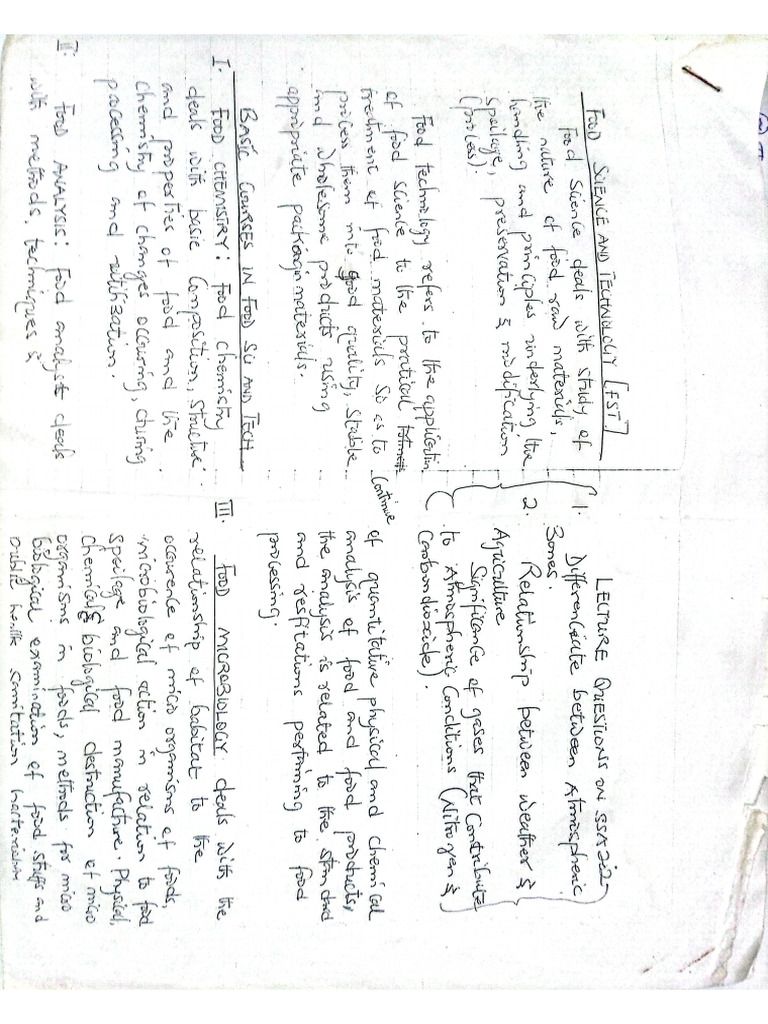 FOOD SCIENCE AND TECHNOLOGY [FST]
Food Science deals with study of
the nature of food raw materials,
handling and principles underlying the
spoilage, preservation & modification
(process).
Food technology refers to the application
of food science to the pratical
treatment of food materials so as to
process them into good quality, stable
and wholesome products using
appropriate packagin materials.
BASIC COURSES IN FOOD SCI AND TECH
I. FOOD CHEMISTRY: Food chemistry
deals with basic Composition, structure
and properties of food and the
chemistry of changes occuring, during
processing and utilization.
II. FOOD ANALYSIS: Food analyst deals
with methods, techniques &
LECTURE QUESTIONS ON SSA 212
1. Differenciate between Atmospheric
Zones.
2. Relationship between weather &
Agriculture
Significance of gases that Contribute
to Atmospheric Conditions (Nitrogen &
Carbondioxide).
Continue
of quantitative physical and chemical
analysis of food and food products,
the analysis is related to the standard
and pertaining to food
processing.
III. FOOD MICROBIOLOGY deals with the
relationship of habitat to the
occurence of micro organisms of foods,
microbiological action in relation to food
spoilage and food manufacture. Physical,
chemical & biological destruction of micro
organisms in foods, methods for micro
biological examination of food stuffs and
public health sanitation